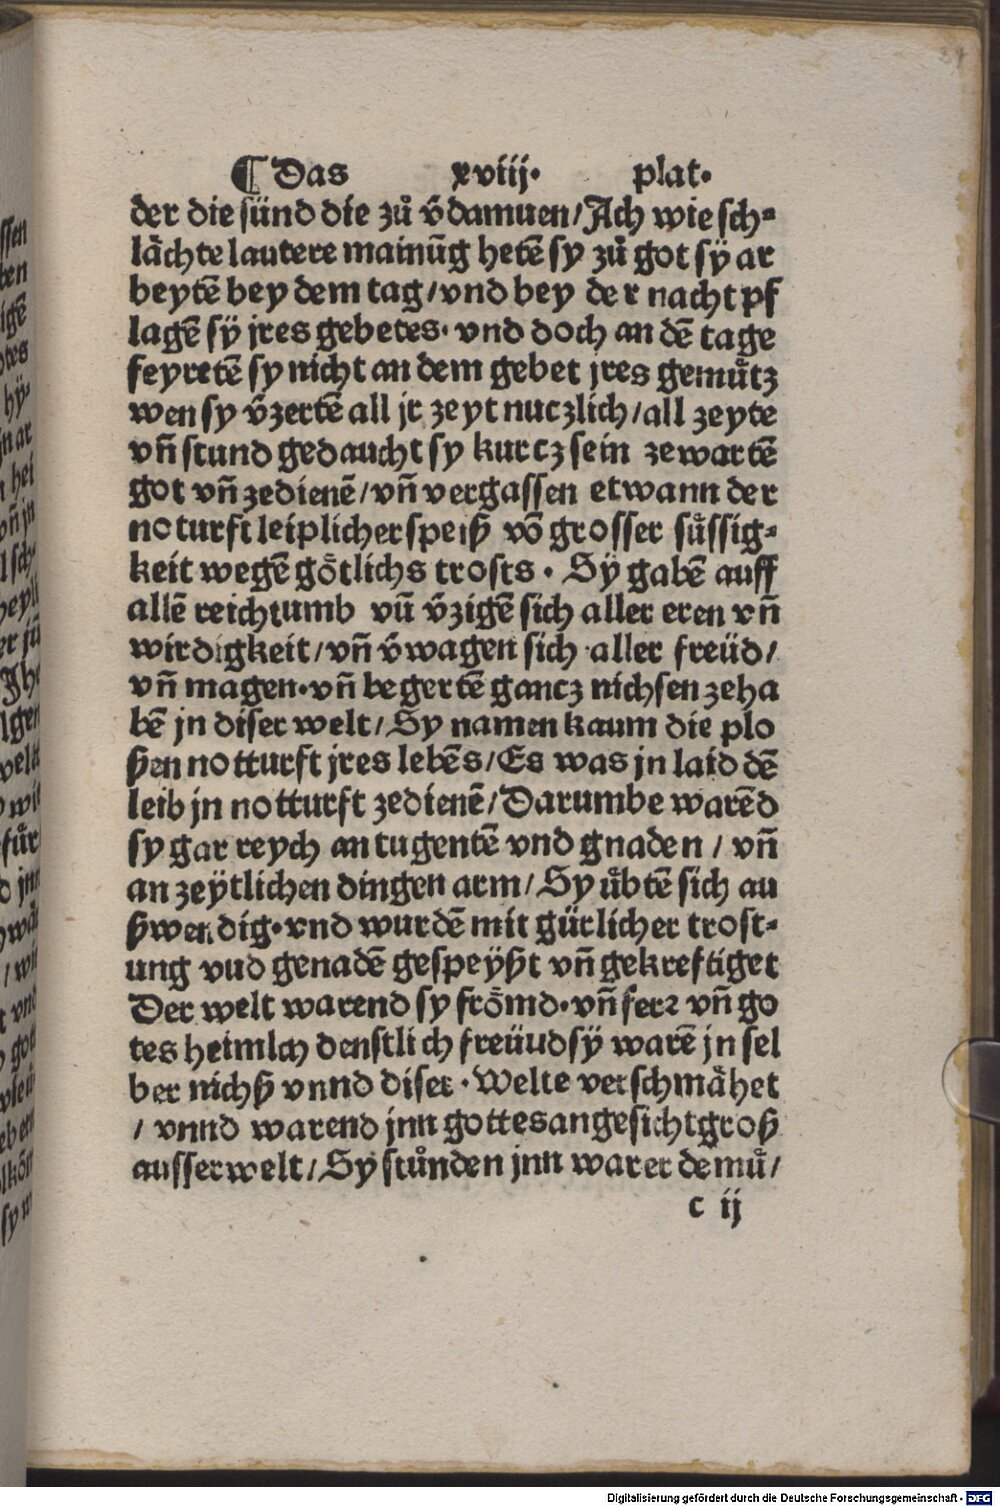 ¶ Das xviij· plat·
der die sünd die zů v̄damuen/Ach wie sch⸗
lächte lautere mainūg hetē sy zů got sÿ ar
beytē bey dem tag/vnd bey der nacht pf
lagē sÿ jres gebetes· vnd doch an dē tage
feyretē sy nicht an dem gebet jres gemůtz
wen sy v̄zertē all jr zeyt nuczlich/all zeyte
vn̄ stund gedaucht sy kurtz sein zewartē
got vn̄ zedienē/vn̄ vergassen etwann der
noturft leiplicher speiß vō grosser sůssig⸗
keit wegē götlichs trosts· Sÿ gabē auff
allē reichtumb vū v̄zigē sich aller eren vn̄
wirdigkeit/vn̄ v̄wagen sich aller freüd/
vn̄ magen·vn̄ begertē gancz nichsen zeha
bē jn diser welt/Sy namen kaum die plo
ßen notturft jres lebēs/Es was jn laid dē
leib jn notturft zedienē/Darumbe warēd
sy gar reych an tugentē vnd gnaden/vn̄
an zeÿtlichen dingen arm/Sy ůbtē sich au
ßwendig·vnd wurdē mit gütlicher trost⸗
ung vud genadē gespeÿßt vn̄ gekreftiget
Der welt warend sy frömd·vn̄ ferꝛ vn̄ go
tes heimlch denstlich freüud sÿ warē jn sel
ber nichß vnnd diser·Welte verschmähet
/vnnd warend jnn gottes angesicht groß
ausserwelt/Sy stůnden jnn warer demů/
c ij
Digitalisierung gefördert durch die Deutsche Forschungsgemeinschaft · DFG